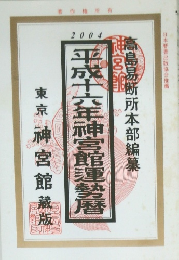 2004
高島易断所本部編纂
平成十六年神宮館運勢暦
東京 神宮館 蔵版
神宮館